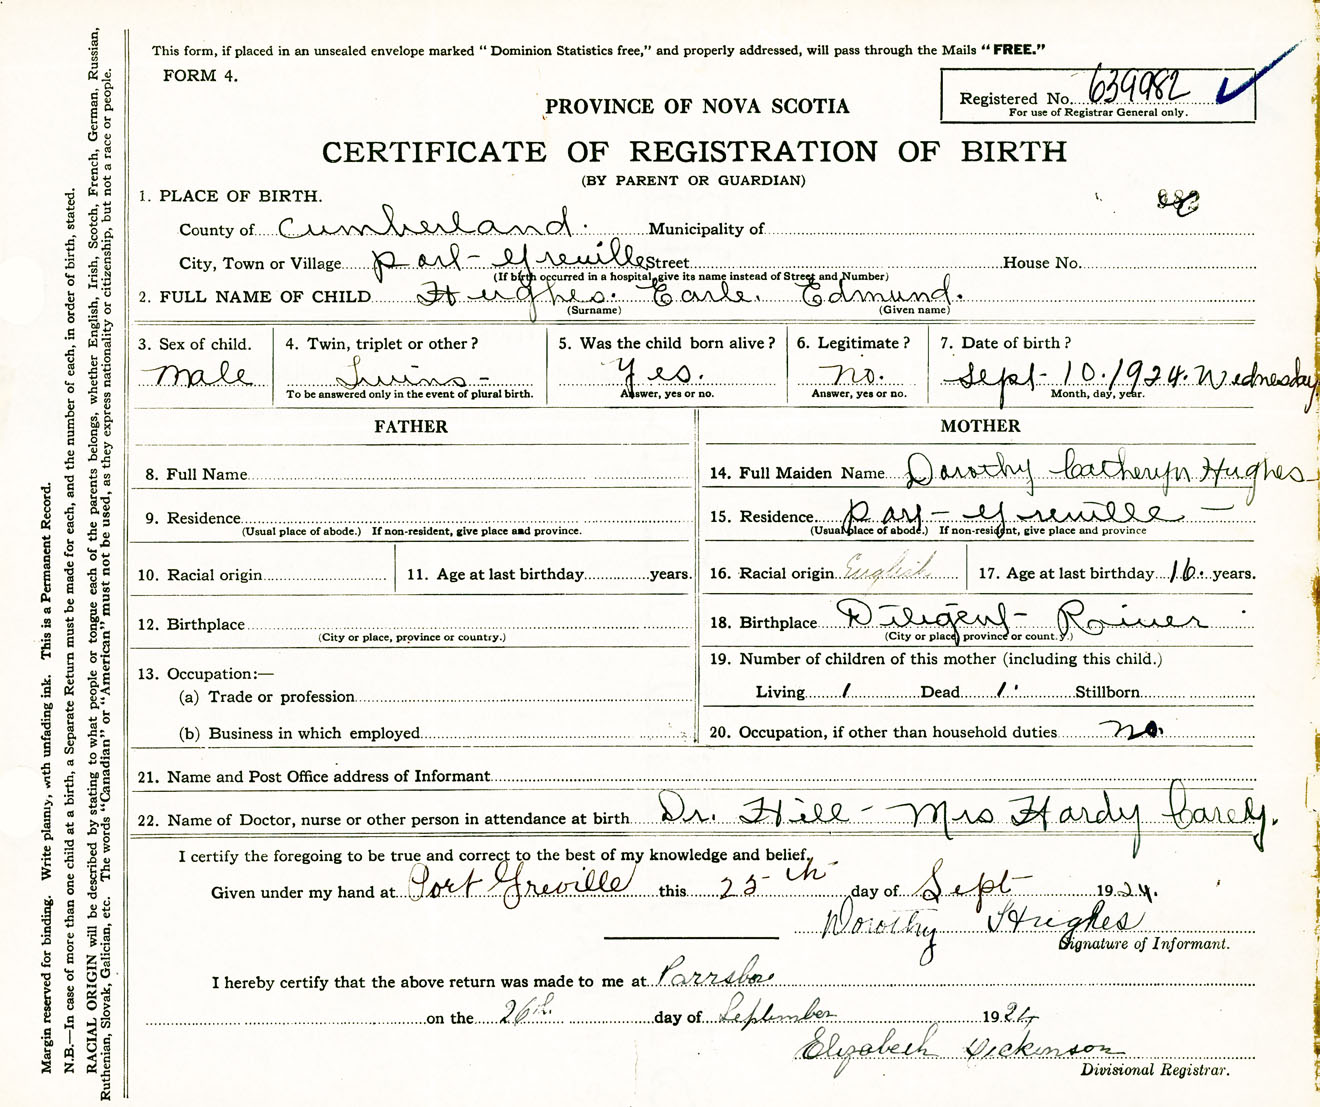 This form, if placed in an unsealed envelope marked “ Dominion Statistics free,” and properly addressed, will pass through the Mails “ FREE.”
FORM 4.
Registered No. 639982
For use of Registrar General only.
PROVINCE OF NOVA SCOTIA
CERTIFICATE OF REGISTRATION OF BIRTH
(BY PARENT OR GUARDIAN)
1. PLACE OF BIRTH.
County of Cumberland. Municipality of
City, Town or Village Port-Greville Street House No.
(If birth occurred in a hospital, give its name instead of Street and Number)
2. FULL NAME OF CHILD Hughes. Earle. Edmund.
(Surname) (Given name)
3. Sex of child. 4. Twin, triplet or other? 5. Was the child born alive? 6. Legitimate? 7. Date of birth?
male Twins- Yes. no. Sept- 10. 1924. Wednesday
To be answered only in the event of plural birth. Answer, yes or no. Answer, yes or no. Month, day, year.
FATHER
8. Full Name
9. Residence
(Usual place of abode.) If non-resident, give place and province.
10. Racial origin 11. Age at last birthday years.
12. Birthplace
(City or place, province or country.)
13. Occupation:—
(a) Trade or profession
(b) Business in which employed
MOTHER
14. Full Maiden Name Dorothy Catheryn Hughes-
15. Residence Port-Greville-
(Usual place of abode.) If non-resident, give place and province
16. Racial origin English 17. Age at last birthday 16. years.
18. Birthplace Diligent- River
(City or place, province or country.)
19. Number of children of this mother (including this child.)
Living 1 Dead 1 Stillborn
20. Occupation, if other than household duties no.
21. Name and Post Office address of Informant
22. Name of Doctor, nurse or other person in attendance at birth Dr. Hill- Mrs Hardy Carey.
I certify the foregoing to be true and correct to the best of my knowledge and belief,
Given under my hand at Port Greville this 25th day of Sept 1924.
Dorothy Hughes
Signature of Informant.
I hereby certify that the above return was made to me at Parrsboro
on the 26th day of September 1924
Elizabeth Dickinson
Divisional Registrar.
Margin reserved for binding. Write plainly, with unfading ink. This is a Permanent Record.
N.B.—In case of more than one child at a birth, a Separate Return must be made for each, and the number of each, in order of birth, stated.
RACIAL ORIGIN will be described by stating to what people or tongue each of the parents belongs, whether English, Irish, Scotch, French, German, Russian,
Ruthenian, Slovak, Galician, etc. The words “Canadian” or “American” must not be used, as they express nationality or citizenship, but not a race or people.